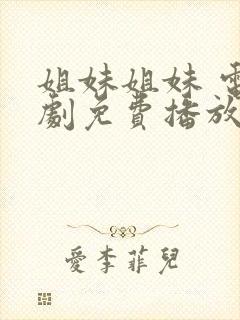 姐妹姐妹 電
劇免費播放
愛李菲兒